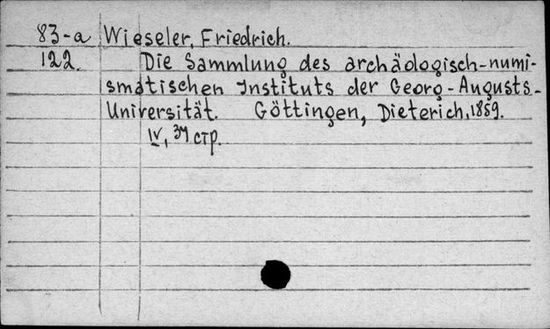 83-a Wieseler, Friedrich.
122. Die Sammlung des archäologisch-numi-
smatischen Instituts der Georg-Augusts-
Universität. Göttingen, Dieterich, 1859.
IV, 34 стр.